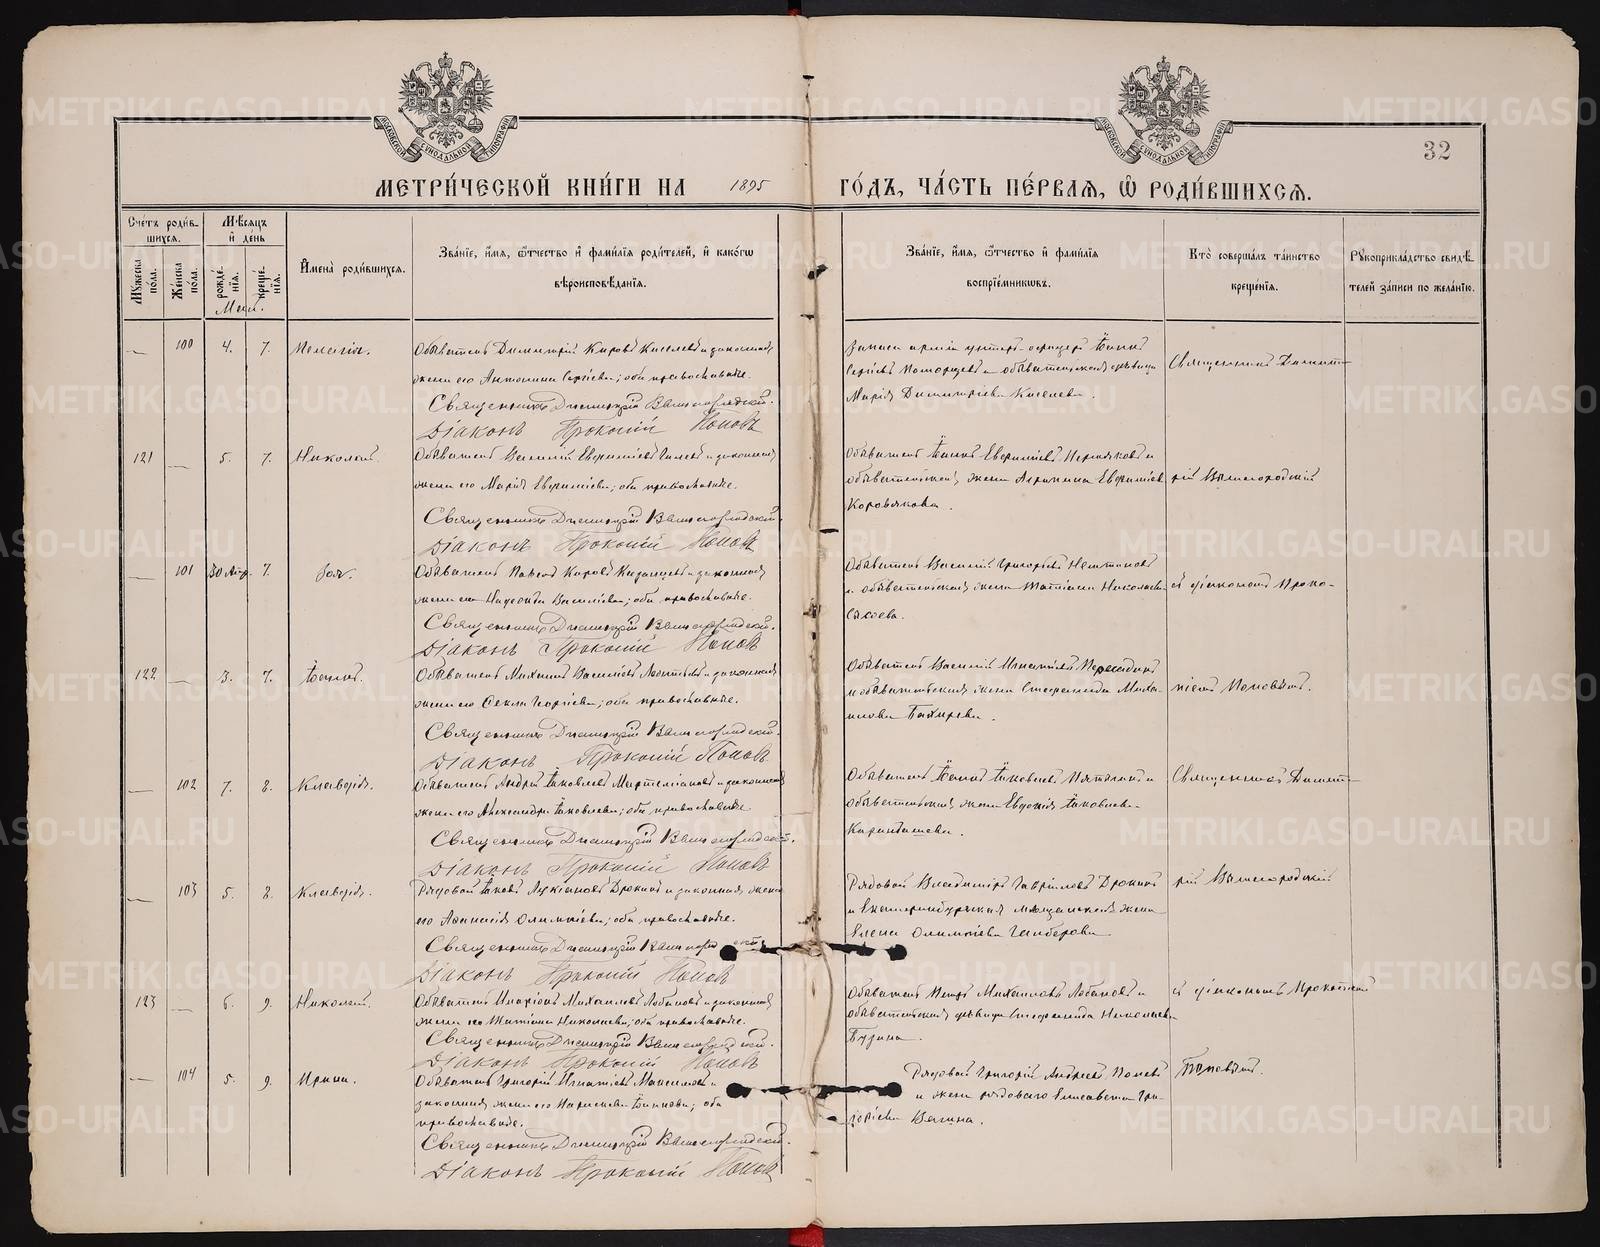 32
МЕТРИ́ЧЕСКОЙ КНИ́ГИ НА 1895 ГО́ДЪ, ЧА́СТЬ ПЕ́РВАѦ, Ѽ РОДИ́ВШИХСѦ.
Сче́тъ роди́вшихсѧ.
Мꙋжеска пола.
Же́нска по́ла.
Мѣ́сѧцъ и҆ де́нь
рожде́нїѧ.
креще́нїѧ.
И҆мена̀ роди́вшихсѧ.
Зва́нїе, и҆́мѧ, ѻ҆́тчество и҆ фами́лїѧ роди́телей, и҆ како́гѡ вѣроисповѣ́данїѧ.
Зва́нїе, и҆́мѧ, ѻ҆́тчество и҆ фами́лїѧ воспрїе́мникѡвъ.
Кто̀ соверша́лъ та́инство креще́нїѧ.
Рꙋкоприкла́дство свидѣ́телей за́писи по жела́нїю.
Май.
100 4. 7. Пелагія.
Обыватель Димитрій Кировъ Киселевъ и законная
жена его Антонина Сергіева; оба православные.
Священникъ Димитрій Вышегородскій.
Діаконъ Прокопій Поповъ
Запаса арміи унтеръ-офицеръ Іоаннъ
Сергіевъ Поморцевъ и обывательская дѣвица
Марія Димитріева Киселева.
Священникъ Димит-
121 5. 7. Николай.
Обыватель Василій Евфиміевъ и законная
жена его Марія Евфиміева; оба православные.
Священникъ Димитрій Вышегородскій.
Діаконъ Прокопій Поповъ
Обыватель Іоаннъ Евфиміевъ Пермяковъ и
обывательская жена Агрипина Евфиміева
Коровякова.
рій Вышегородскій
101 30 Апр. 7. Зоя.
Обыватель Павелъ Кировъ Казанцевъ и законная
жена его Надежда Василіева; оба православные.
Священникъ Димитрій Вышегородскій.
Діаконъ Прокопій Поповъ
Обыватель Василій Григорьевъ
и обывательская жена Татіана Николаева
Сысоева.
съ діакономъ Проко-
122 3. 7. Іоаннъ.
Обыватель Михаилъ Василіевъ Леонтьевъ и законная
жена его Секла Георгіева; оба православные.
Священникъ Димитрій Вышегородскій.
Діаконъ Прокопій Поповъ
Обыватель Василій Игнатіевъ
и обывательская жена Стефанида Миха-
илова Бахирева.
піемъ Поповымъ.
102 7. 8. Клавдія.
Обыватель Андрей Іаковлевъ и законная
жена его Александра Іаковлева; оба православные
Священникъ Димитрій Вышегородскій.
Діаконъ Прокопій Поповъ
Обыватель Іоаннъ Іаковлевъ и
обывательская жена Евдокія Іаковлева
Карандашева.
Священникъ Димит-
103 5. 8. Клавдія.
Рядовой Іаковъ Лукіановъ Дрокинъ и законная жена
его Афанасія Олимпіева; оба православные.
Священникъ Димитрій
Діаконъ Прокопій Поповъ
Рядовой Владиміръ Гавріиловъ Дрокинъ
и Екатеринбургская мѣщанская жена
Елена Олимпіева
рій Вышегородскій
123 6. 9. Николай.
Обыватель Иларіонъ Михаиловъ Лобановъ и законная
жена его Татіана Николаева; оба православные.
Священникъ Димитрій Вышегородскій.
Діаконъ Прокопій Поповъ
Обыватель Петръ Михаиловъ Лобановъ и
обывательская дѣвица Стефанида Николаева
Бузина.
съ діакономъ Прокопіемъ
104 5. 9. Ирина.
Обыватель Григорій Игнатіевъ Максимовъ и
законная жена его Іоаннова; оба
православные.
Священникъ Димитрій Вышегородскій.
Діаконъ Прокопій Поповъ
Рядовой Григорій Андреевъ Поповъ
и жена рядоваго Елисавета Гри-
горіева
Поповымъ.
METRIKI.GASO-URAL.RU